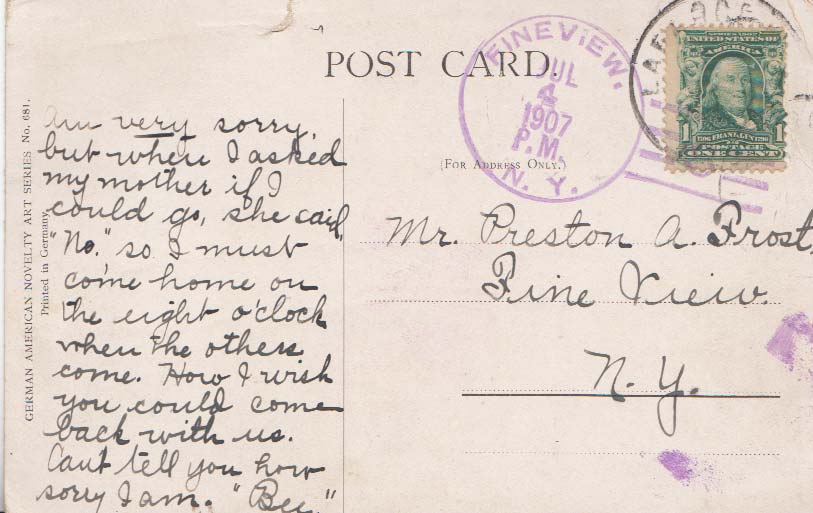 POST CARD.
(FOR ADDRESS ONLY.)
GERMAN AMERICAN NOVELTY ART SERIES No. 681.
Printed in Germany
FINEVIEW.
JUL
4
1907
P.M.
N. Y.
SERIES 1902
UNITED STATES OF
AMERICA
1706 FRANKLIN 1790
1 POSTAGE 1
ONE CENT
Am very sorry,
but when I asked
my mother if I
could go, she said,
"No." so I must
come home on
the eight o'clock
when the others
come. How I wish
you could come
back with us.
Can't tell you how
sorry I am. "Bee."
Mr. Preston A. Frost,
Fine View.
N. Y.